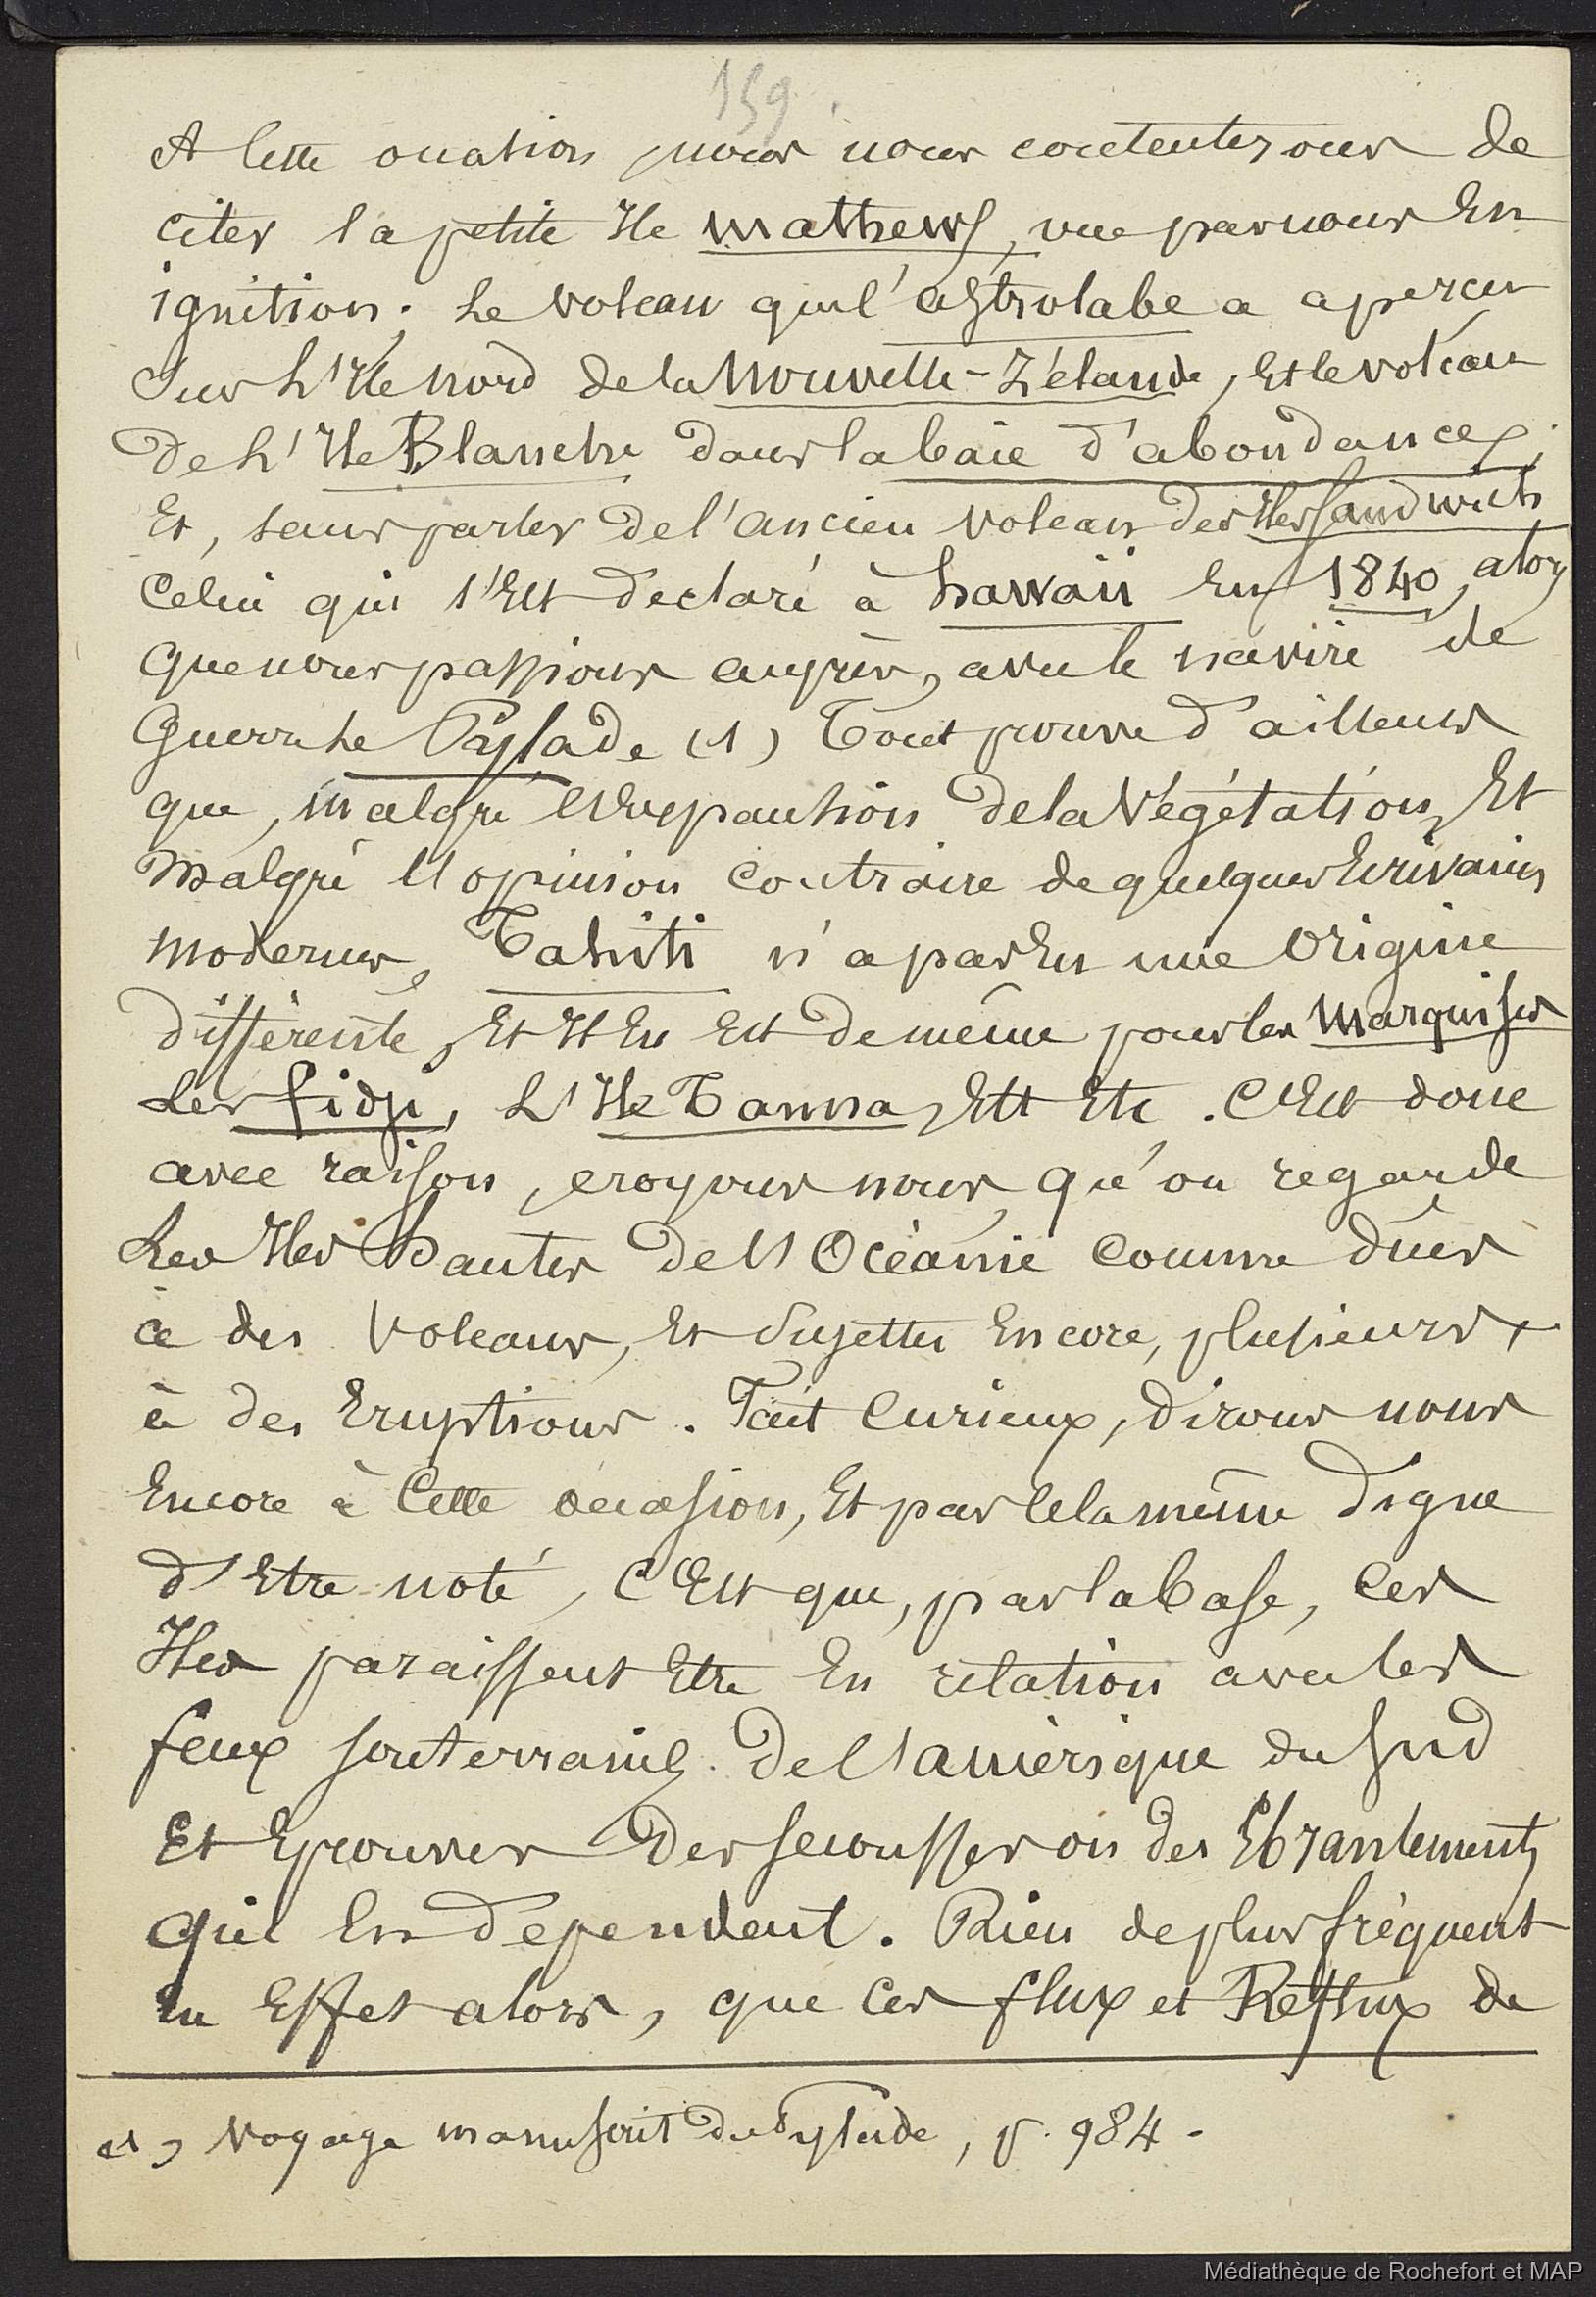 159.
A cette occasion, nous nous contenterons de
citer la petite Ile Mathews, vue par nous En
ignition ; Le Volcan que l'astrolabe a aperçu
Sur L'Ile nord de la Nouvelle-Zélande, Et le volcan
De L'Ile Blanche dans la baie d'abondance ;
Et, sans parler De l'ancien volcan des Iles Sandwich
Celui qui s'Est déclaré à hawaii En 1840, alors
que nous passions auprès, avec le navire de
Guerre Le Pylade (1) Tout prouve d'ailleurs
que, malgré l'Expansion De la Végétation, Et
Malgré l'opinion contraire de quelques Ecrivains
modernes, Tahiti n'a pas Eu une Origine
différente, Et Il En Est De même pour les Marquises
Les fidji, L'Ile Tanna, Ett Etc. C'Est donc
avec raison, croyons nous, qu'on regarde
Les Iles hautes De l'Océanie Comme dûes
à des Volcans, Et Sujettes Encore, plusieurs,
à des Eruptions. Fait Curieux, dirons nous
Encore à Cette occasion, Et par Cela même Digne
d'Etre noté, C'Est que, par la base, Ces
Iles paraissent Etre En relation avec les
feux souterrains De l'amérique du Sud
Et Eprouver Des secousses ou des Ebranlements
qui En dépendent. Rien de plus fréquent
En Effet alors, que Ces flux et Reflux de
(1) Voyage manuscrit du Pylade, p. 984.
Médiathèque de Rochefort et MAP